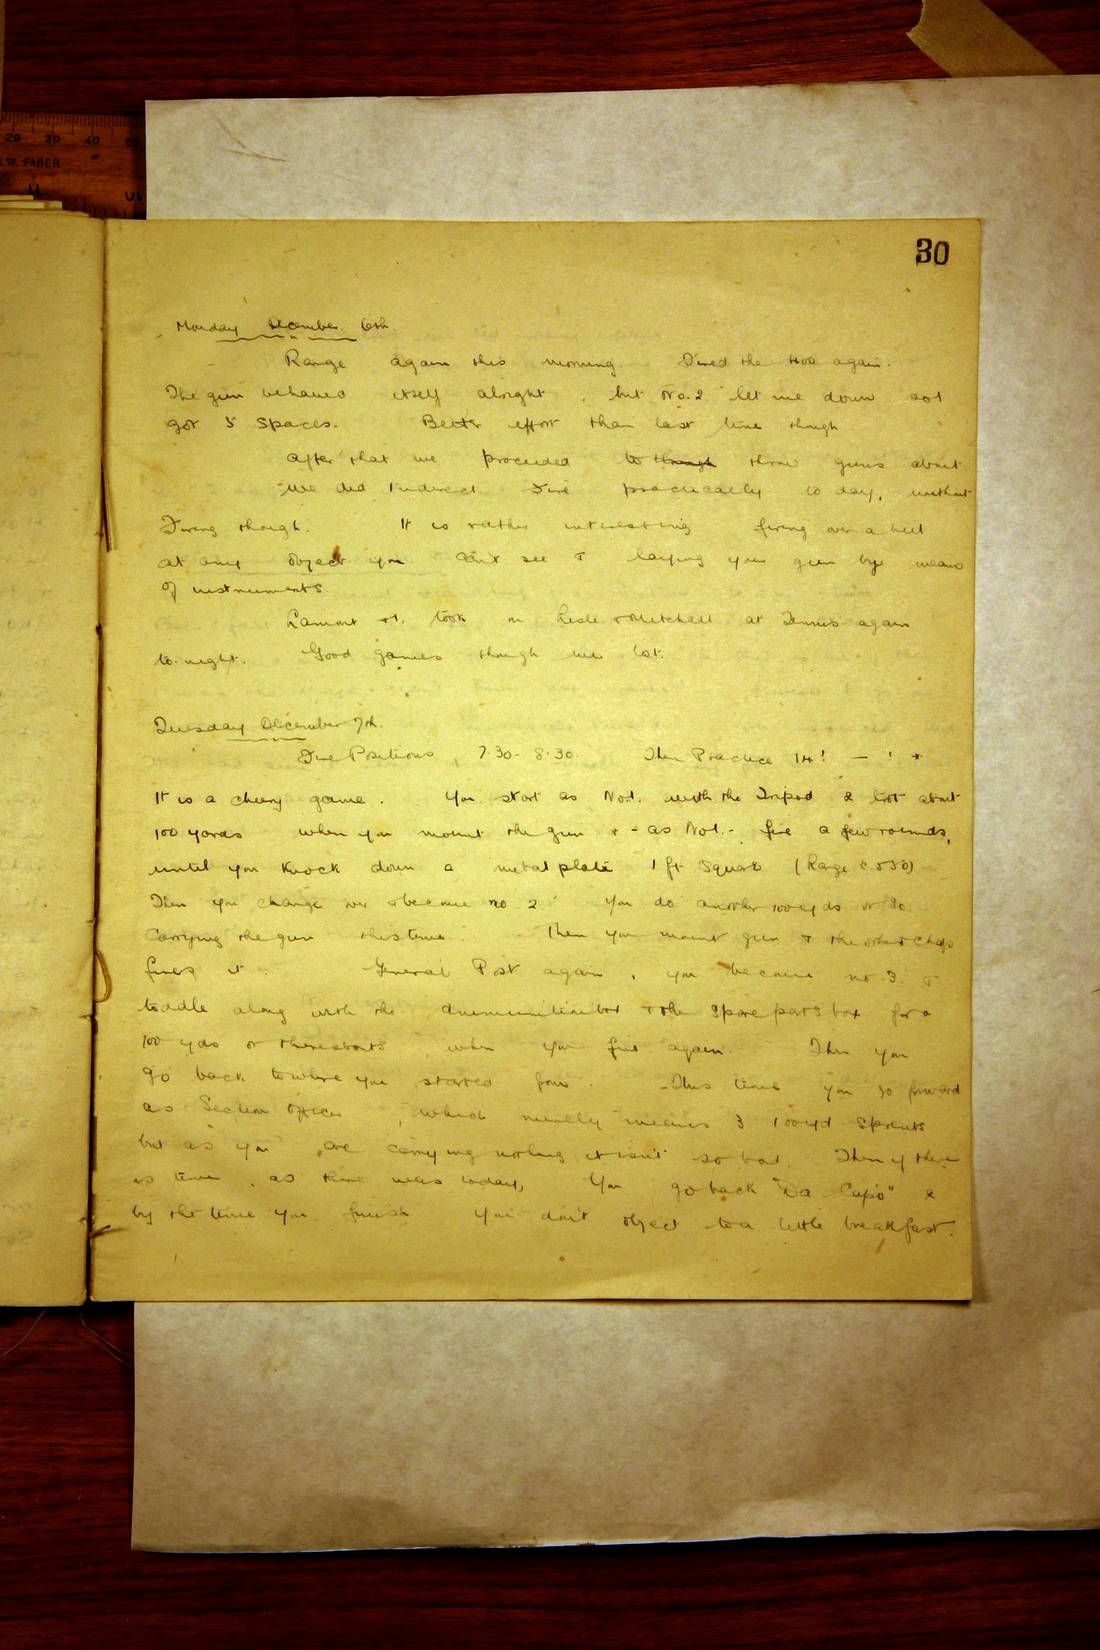 20 30 40
W. FABER
30
Monday December 6th.
Range again this morning. Fired the 400 again.
The gun behaved itself alright, but No. 2 let me down so I
got 5 spaces. Better effort than last time though
After that we proceeded to though throw guns about
We did Indirect Fire practically to day, without
Firing though. It is rather interesting firing over a hill
at any object you can't see & laying your gun by means
of instruments.
Lamont & I. took on Leslie & Mitchell at Tennis again
to-night. Good games though we lost.
Tuesday December 7th.
Fire Positions, 7.30 - 8.30. Then Practice 14! — !
It is a cheery game. You start as No 1. with the Tripod & trot about
100 yards when you mount the gun & - as No 1. - fire a few rounds,
until you knock down a metal plate 1 ft square (Range
Then you change over & become no 2. You do another 100 yds or so
carrying the gun this time. Then you mount gun & the other chap
fires it. General Post again, you become no. 3. &
toddle along with the ammunition box & the spare parts box for a
100 yds or thereabouts when you fire again. Then you
go back to where you started from. This time you go forward
as Section Officer, which merely means 3 100 yd sprints
but as you are carrying nothing it isn't so bad. Then if there
is time, as there was today, you go back "Da Capo" &
by the time you finish you don't object to a little breakfast.